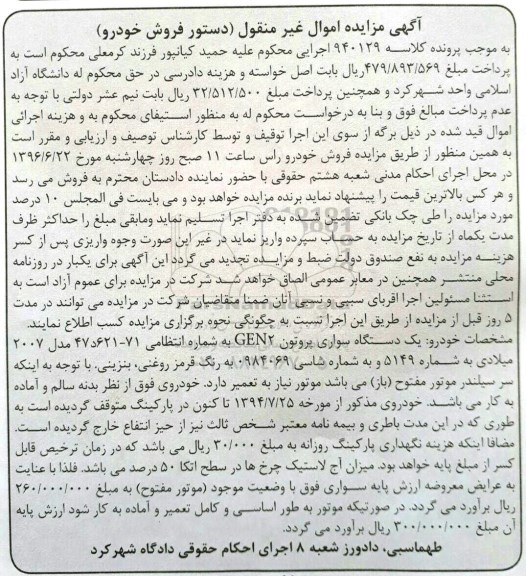 آگهی مزایده اموال غیر منقول (دستور فروش خودرو)
به موجب پرونده کلاسه ۹۴۰۱۲۹ اجرایی محکوم علیه حمید کیانپور فرزند کرمعلی محکوم است به
پرداخت مبلغ ۴۷۹/۸۹۳/۵۶۹ریال بابت اصل خواسته و هزینه دادرسی در حق محکوم له دانشگاه آزاد
اسلامی واحد شهرکرد و همچنین پرداخت مبلغ ۳۲/۵۱۲/۵۰۰ ریال بابت نیم عشر دولتی با توجه به
عدم پرداخت مبالغ فوق و بنا به درخواست محکوم له به منظور استیفای محکوم به و هزینه اجرائی
اموال قید شده در ذیل برگه از سوی این اجرا توقیف و توسط کارشناس توصیف و ارزیابی و مقرر است
به همین منظور از طریق مزایده فروش خودرو راس ساعت ۱۱ صبح روز چهارشنبه مورخ ۱۳۹۶/۶/۲۲
در محل اجرای احکام مدنی شعبه هشتم حقوقی با حضور نماینده دادستان محترم به فروش می رسد
و هر کس بالاترین قیمت را پیشنهاد نماید برنده مزایده خواهد بود و می بایست فی المجلس ۱۰ درصد
مورد مزایده را طی چک بانکی تضمین شده به دفتر اجرا تسلیم نماید ومابقی مبلغ را حداکثر ظرف
مدت یکماه از تاریخ مزایده به حساب سپرده واریز نماید در غیر این صورت وجوه واریزی پس از کسر
هزینه مزایده به نفع صندوق دولت ضبط و مزایده تجدید می گردد این آگهی برای یکبار در روزنامه
محلی منتشر همچنین در معابر عمومی الصاق خواهد شد شرکت در مزایده برای عموم آزاد است به
استثنا مسئولین اجرا اقربای سببی و نسبی آنان ضمنا متقاضیان شرکت در مزایده می توانند در مدت
۵ روز قبل از مزایده از طریق این اجرا نسبت به چگونگی نحوه برگزاری مزایده کسب اطلاع نمایند.
مشخصات خودرو: یک دستگاه سواری پروتون GEN۲ به شماره انتظامی ۷۱-۶۲۱د۴۷ مدل ۲۰۰۷
میلادی به شماره ۵۱۴۹ و به شماره شاسی ۰۹۸۴۰۶۹ به رنگ قرمز روغنی، بنزینی. با توجه به اینکه
سر سیلندر موتور مفتوح (باز) می باشد موتور نیاز به تعمیر دارد. خودروی فوق از نظر بدنه سالم و آماده
به کار می باشد. خودروی مذکور از مورخه ۱۳۹۴/۷/۲۵ تا کنون در پارکینگ متوقف گردیده است به
طوری که در این مدت باطری و بیمه نامه معتبر شخص ثالث نیز از حیز انتفاع خارج گردیده است.
مضافا اینکه هزینه نگهداری پارکینگ روزانه به مبلغ ۳۰/۰۰۰ ریال می باشد که در زمان ترخیص قابل
کسر از مبلغ پایه خواهد بود. میزان آج لاستیک چرخ ها در سطح اتکا ۵۰ درصد می باشد. فلذا با عنایت
به عرایض معروضه ارزش پایه سواری فوق با وضعیت موجود (موتور مفتوح) به مبلغ ۲۶۰/۰۰۰/۰۰۰
ریال برآورد می گردد. در صورتیکه موتور به طور اساسی و کامل تعمیر و آماده به کار شود ارزش پایه
آن مبلغ ۳۰۰/۰۰۰/۰۰۰ ریال برآورد می گردد.
طهماسبی، دادورز شعبه ۸ اجرای احکام حقوقی دادگاه شهرکرد